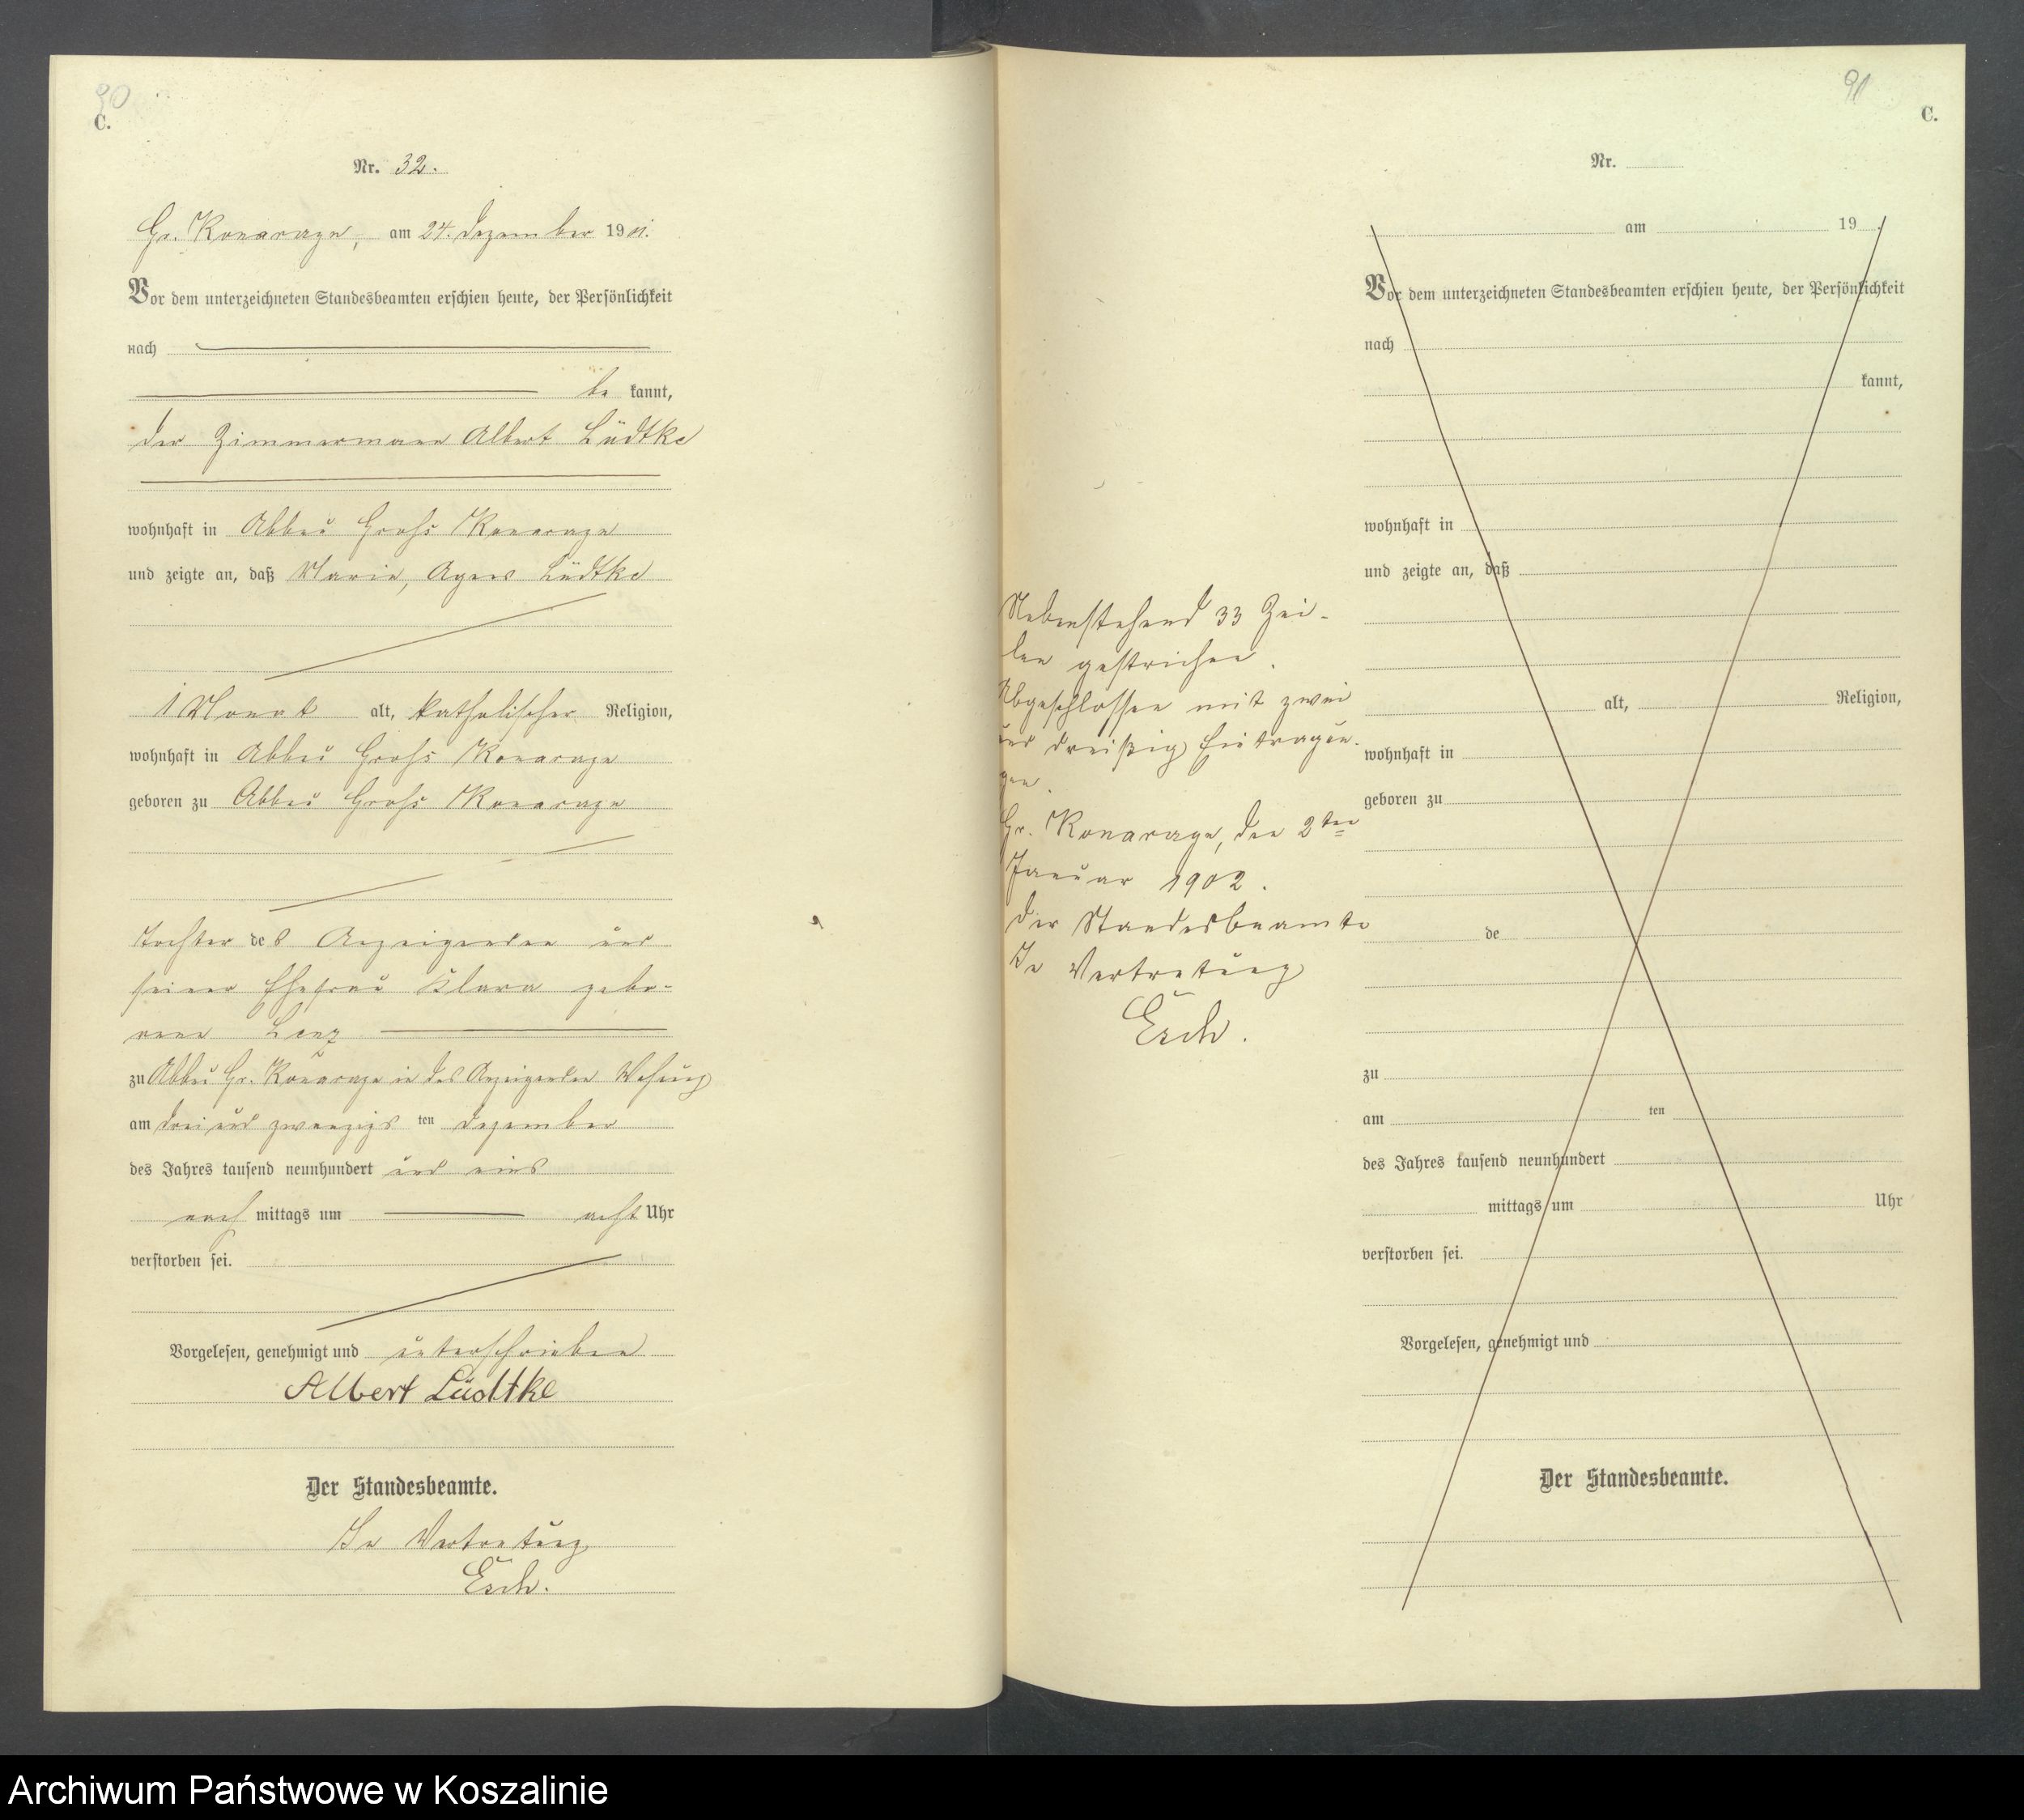 90
C.
Nr. 32.
Gr. Konarczyn, am 24. Dezember 1901.
Vor dem unterzeichneten Standesbeamten erschien heute, der Persönlichkeit
nach
be kannt,
der Zimmermann Albert Lüdtke
wohnhaft in Abbau Groß Konarczyn
und zeigte an, daß Marie, Agnes Lüdtke
1 Monat alt, katholischer Religion,
wohnhaft in Abbau Groß Konarczyn
geboren zu Abbau Groß Konarczyn
Tochter des Anzeigenden und
seiner Ehefrau Klara gebo-
rene Lenz
zu Abbau Gr. Konarczyn in des Anzeigenden Wohnung
am drei und zwanzigs ten Dezember
des Jahres tausend neunhundert und eins
nach mittags um acht Uhr
verstorben sei.
Vorgelesen, genehmigt und unterschrieben
Albert Lüdtke
Der Standesbeamte.
In Vertretung
Esch.
91
C.
Nr.
am 19
Vor dem unterzeichneten Standesbeamten erschien heute, der Persönlichkeit
nach
kannt,
wohnhaft in
und zeigte an, daß
alt, Religion,
wohnhaft in
geboren zu
de
zu
am ten
des Jahres tausend neunhundert
mittags um Uhr
verstorben sei.
Vorgelesen, genehmigt und
Der Standesbeamte.
Nebenstehend 33 Zei-
len gestrichen.
Abgeschlossen mit zwei
und dreißig Eintragun-
gen.
Gr. Konarczyn, den 2ten
Januar 1902.
Der Standesbeamte
In Vertretung
Esch.
Archiwum Państwowe w Koszalinie